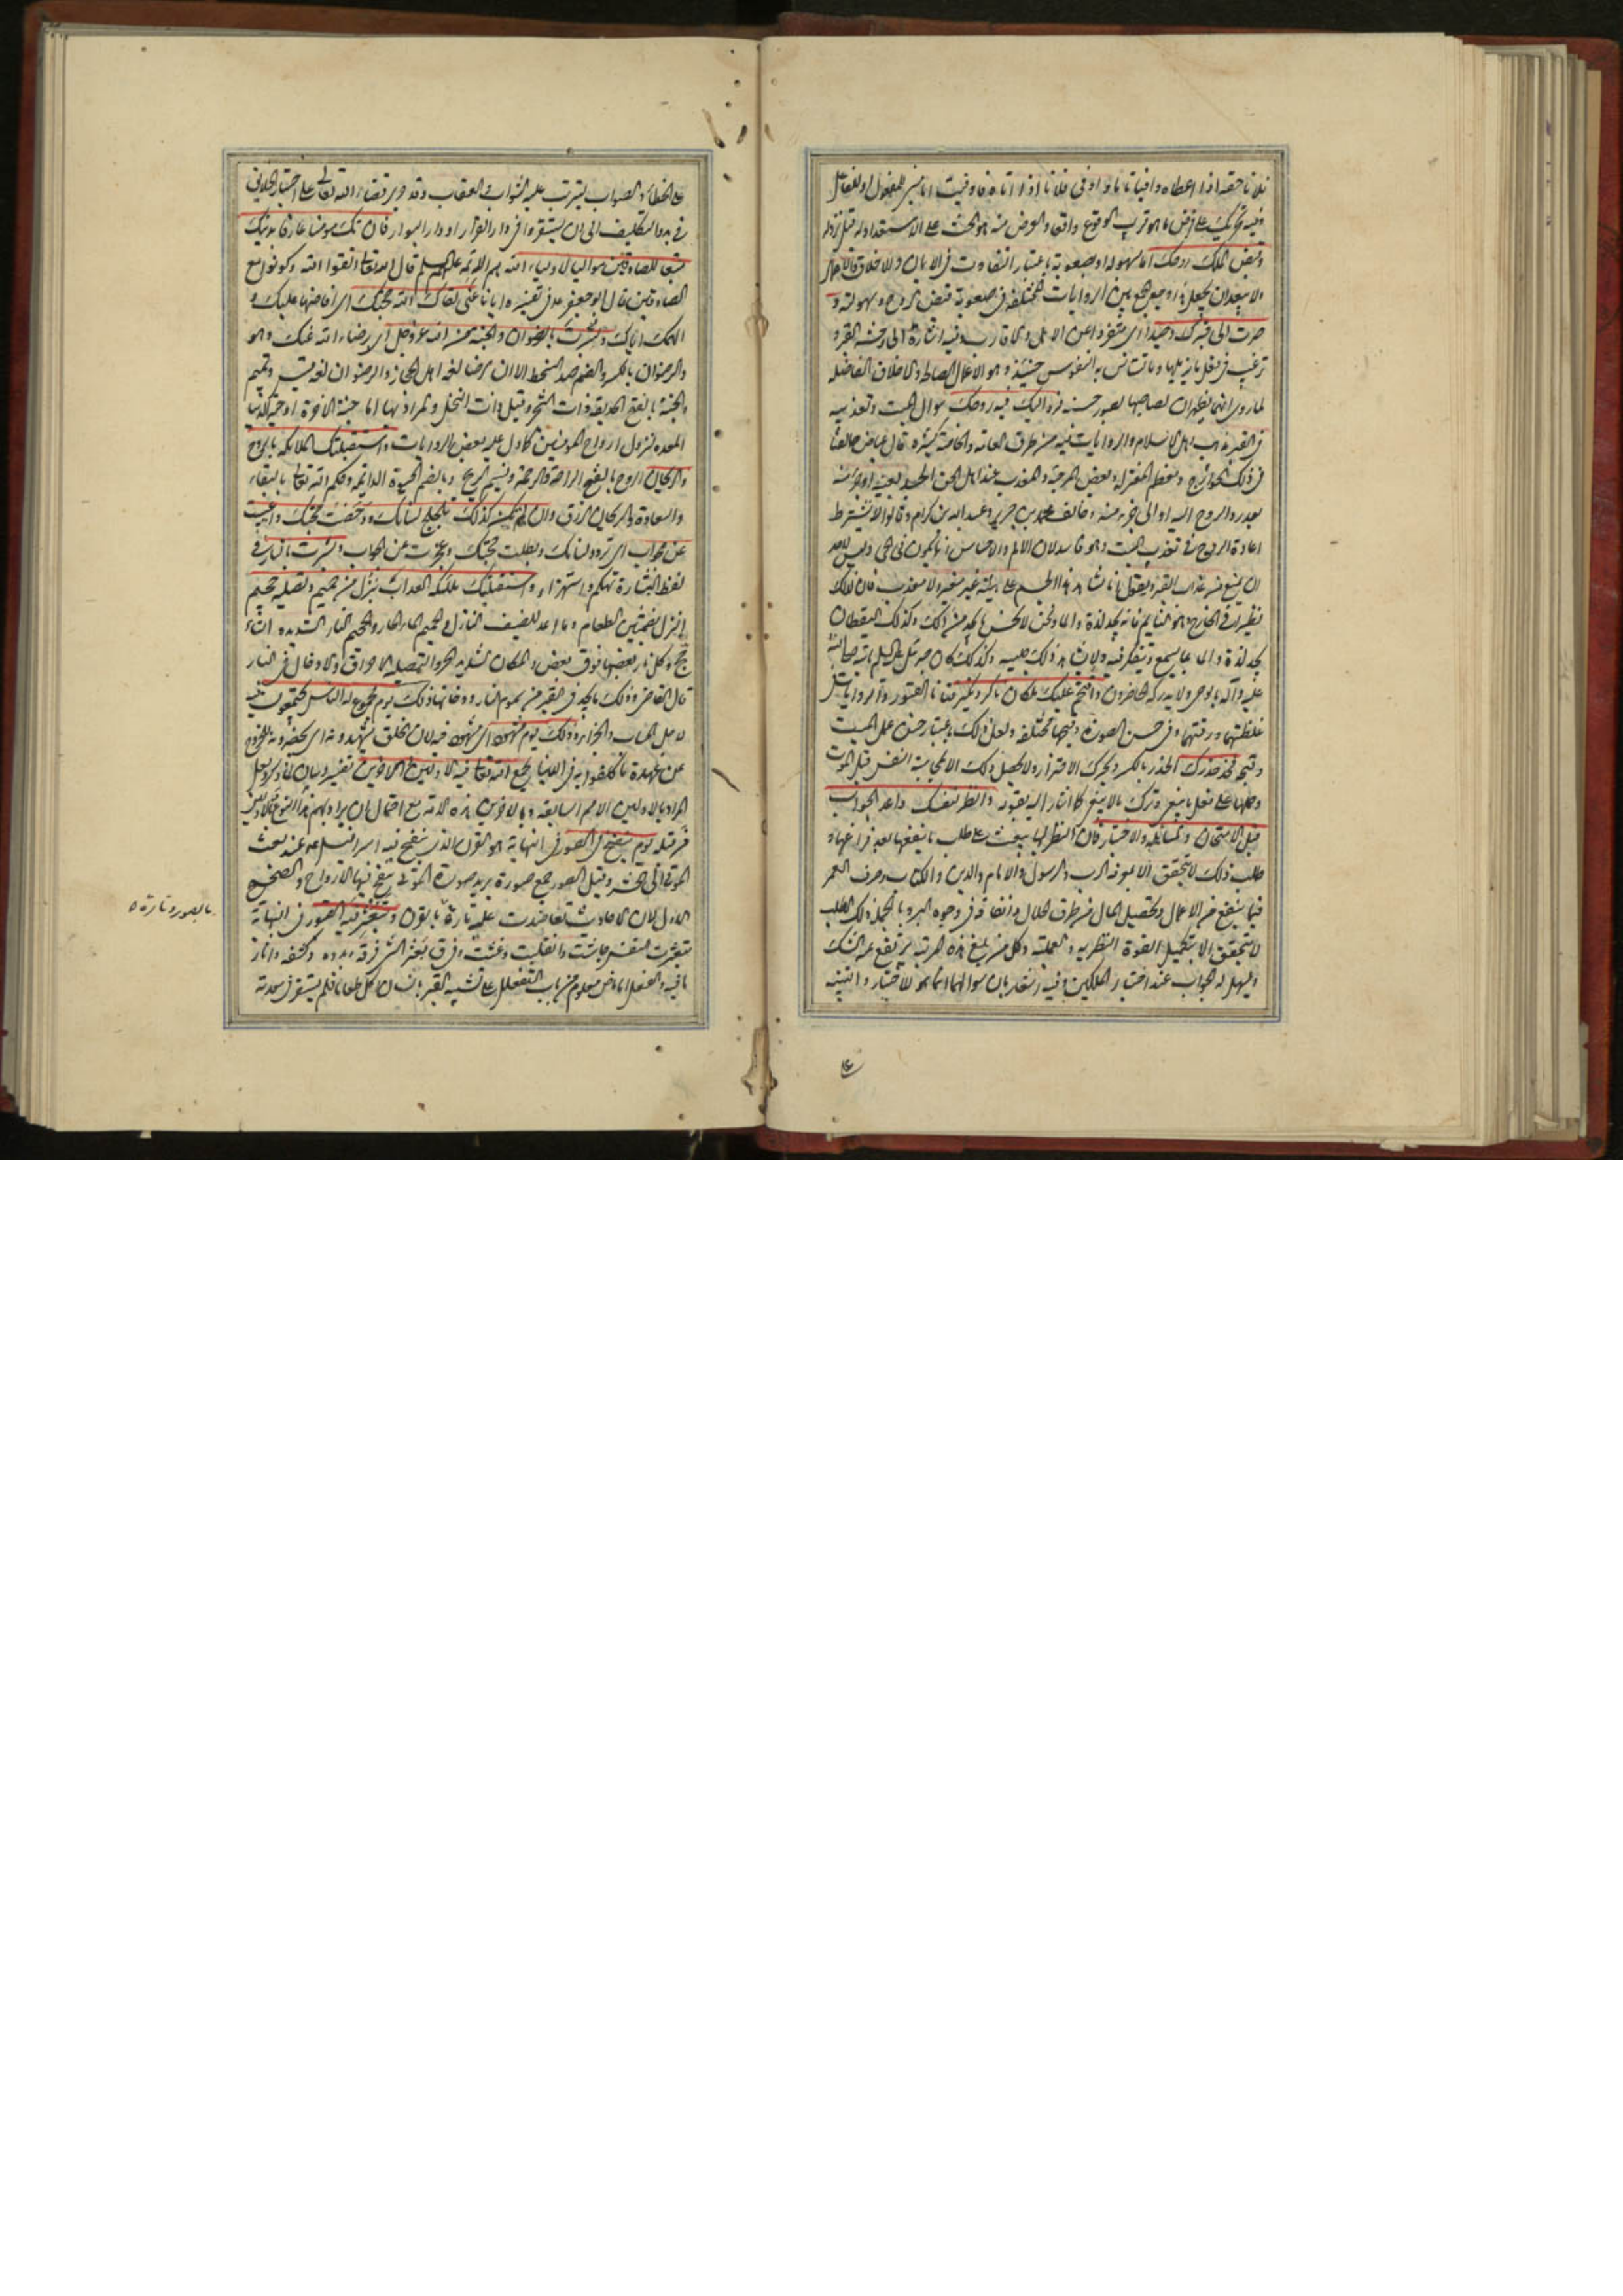 فلانا حقه اذا اعطاه وافيا تاما واوفى فلانا اذا اتاه فاوفيت اما مبنى للمفعول او للفاعل
وفيه تحريك على فرض ما هو قريب الوقوع واقعا والغرض منه هو الحث على الاستعداد له قبل نزوله
وقبض الملك روحك اما بسهولة او بصعوبة باعتبار التفاوت فى الايمان والاخلاق والاعمال
ولا يبعد ان يجعل هذا وجه الجمع بين الروايات المختلفة فى صعوبة قبض الروح وسهولته و
صرت الى قبرك وحيدا اى منفردا عن الاهل والاقارب وفيه اشارة الى وحشة القبر و
ترغيب فى فعل ما يزيلها وما تستانس به النفوس حينئذ وهو الاعمال الصالحة والاخلاق الفاضلة
لما روى انهما يظهران لصاحبها بصور حسنة فرد اليك فيه روحك سؤال الميت وتعذيبه
فى القبر مذهب اهل الاسلام والروايات فيه من طرق العامة والخاصة كثيرة قال عياض خالفنا
فى ذلك الخوارج ومعظم المعتزلة وبعض المرجئة والمعذب عند اهل الحق الجسد بعينه او جزء منه
بعد رد الروح اليه او الى جزء منه وخالف محمد بن جرير وعبد الله بن كرام وقالوا لا يشترط
اعادة الروح فى تعذيب الميت وهو فاسد لان الالم والاحساس انما يكون فى الحى وليس لاحد
ان يمنع من عذاب القبر ويقول انا نشاهد هذا الجسم على هيئته غير منعم ولا معذب فان لذلك
نظيرا فى الخارج وهو النائم فانه يجد لذة والما ونحن لا نحس ما يجد من ذلك وكذلك اليقظان
يجد لذة والما مما يسمع ويتفكر فيه ولا يشاهد ذلك جليسه وكذلك كان جبرئيل عليه السلم ياتيه صلى الله
عليه وآله بالوحى ولا يدركه الحاضرون واقتحم عليك ملكان ناكر ونكير فتانا القبور والروايات فى
غلظتهما ورقتهما وفى حسن الصورة وقبحها مختلفة ولعل ذلك باعتبار حسن عمل الميت
وقبحه فخذ حذرك الحذر بالكسر ويحرك الاحتراز ولا يحصل ذلك الا بمحاسبة النفس قبل الموت
وحملها على فعل ما ينبغى وترك ما لا ينبغى كما اشار اليه بقوله وانظر لنفسك واعد الجواب
قبل الامتحان والمسائلة والاختبار فان النظر لها يبعث على طلب ما ينفعها بعد فراغها و
طلب ذلك لا يتحقق الا بمعرفة الرب والرسول والامام والدين والكتاب وصرف العمر
فيما ينفع من الاعمال وتحصيل المال من طرق الحلال وانفاقه فى وجوه البر وبالجملة ذلك الطلب
لا يتحقق الا بتكميل القوة النظرية والعملية وكل من بلغ هذه المرتبة يرتفع عنه الشك
ويسهل له الجواب عند اختبار الملكين وفيه اشعار بان سؤالهما انما هو للاختبار والتنبيه
على
على الخطاء والصواب ليترتب عليه الثواب والعقاب وقد جرى قضاء الله تعالى على اختبار الخلايق
فى بدو التكليف الى ان يستقروا فى دار القرار او دار البوار فان تك مؤمنا عارفا بدينك
متبعا للصادقين مواليا لاولياء الله هم الائمة عليهم السلم قال الله تعالى اتقوا الله وكونوا مع
الصادقين قال ابو جعفر ع فى تفسيره ايانا عنى لقاك الله حجتك اى افاضها عليك و
الهمك اياك وبشرت بالرضوان والجنة من الله عز وجل اى برضاء الله عنك وهو
والرضوان بالكسر والضم ضد السخط الا ان الرضا لغة اهل الحجاز والرضوان لغة قيس وتميم
والجنة بالفتح الحديقة ذات الشجر وقيل ذات النخل والمراد بها اما جنة الاخرة او جنة الدنيا
المعدة لنزول ارواح المؤمنين كما دل عليه بعض الروايات واستقبلتك الملائكة بالروح
والريحان الروح بالفتح الراحة والرحمة ونسيم الريح وبالضم الحيوة الدائمة وحكم الله تعالى بالبقاء
والسعادة والريحان الرزق وان لم تكن كذلك تلجلج لسانك ودحضت حجتك وعييت
عن الجواب اى تردد لسانك وبطلت حجتك وعجزت عن الجواب وبشرت بالنار فى
لفظ البشارة تهكم واستهزاء واستقبلتك ملئكة العذاب بنزل من حميم وتصلية جحيم
النزل بضمتين الطعام وما اعد للضيف النازل والحميم الماء الحار والجحيم النار الشديدة التاجج
وكل نار بعضها فوق بعض والمكان الشديد الحر والتصلية الاحراق والادخال فى النار
قال القاضى وذلك ما يجد فى القبر من سموم النار ودخانها ذلك يوم مجموع له الناس يجتمعون فيه
لاجل الحساب والجزاء وذلك يوم مشهود اى مشهود فيه لان الخلق يشهدونه اى يحضرونه للخروج
عن عهدة ما كلفوا به فى الدنيا يجمع الله تعالى فيه الاولين والاخرين تفسير وبيان لما ذكر ولعل
المراد بالاولين الامم السابقة وبالاخرين هذه الامة مع احتمال ان يراد بهم هذا النوع وبالاولين
من قبله يوم ينفخ فى الصور فى النهاية هو القرن الذى ينفخ فيه اسرافيل ع عند بعث
الموتى الى المحشر وقيل الصور جمع صورة يريد صورة الموتى ينفخ فيها الارواح والصحيح
الاول لان الاحاديث تعاضدت عليه تارة بالقرن وتبعثر فيه القبور فى النهاية
تبعثرت النفس جاشت وانقلبت وغثت وفى ق بعثر الشئ فرقه وبدده وكشفه واثار
ما فيه والفعل اما ماض معلوم من باب التفعلل على تشبيه القبر بانسان اكل طعاما فلم يستقر فى معدته
بالصور وتارة